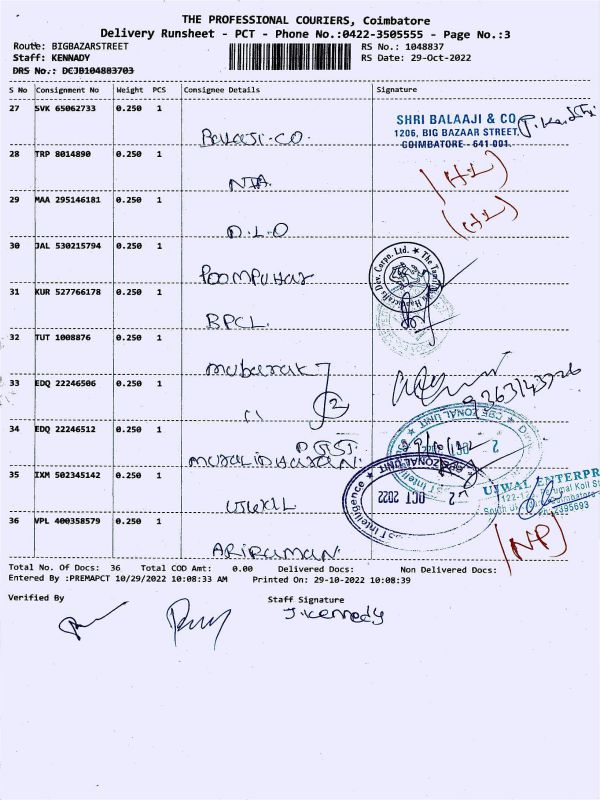 THE PROFESSIONAL COURIERS, Coimbatore
Delivery Runsheet - PCT - Phone No.:0422-3505555 - Page No.:3
Route: BIGBAZARSTREET RS No.: 1048837
Staff: KENNADY RS Date: 29-Oct-2022
DRS No.: DCJB104883703
S No Consignment No Weight PCS Consignee Details Signature
27 SVK 65062733 0.250 1
SHRI BALAAJI & CO
1206, BIG BAZAAR STREET,
COIMBATORE - 641 001.
Balaaji.co.
28 TRP 8014890 0.250 1
NIA
29 MAA 295146181 0.250 1
D.L.O
30 JAL 530215794 0.250 1
Poompuhar
31 KUR 527766178 0.250 1
BPCL.
32 TUT 1008876 0.250 1
mubarak
33 EDQ 22246506 0.250 1
11 2
34 EDQ 22246512 0.250 1
35 IXM 502345142 0.250 1
OCT 2022
UJWAL ENTERPR
Ujwal
36 VPL 400358579 0.250 1
(NP)
Ariraman.
Total No. Of Docs: 36 Total COD Amt: 0.00 Delivered Docs: Non Delivered Docs:
Entered By :PREMAPCT 10/29/2022 10:08:33 AM Printed On: 29-10-2022 10:08:39
Verified By Staff Signature
J.Kennedy